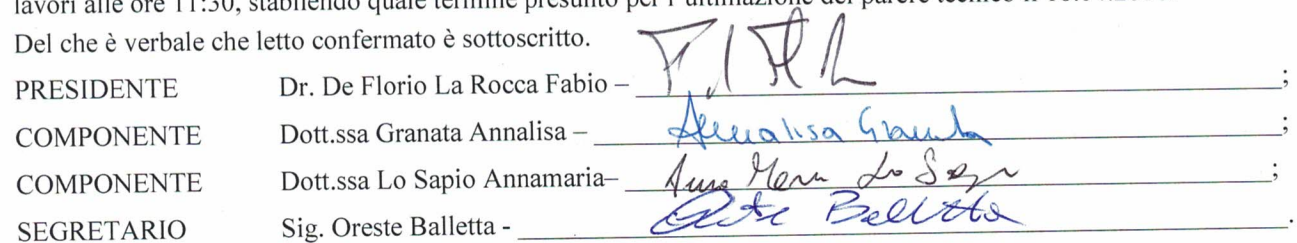 lavori alle ore 11:30, stabilendo quale termine presunto per l'ultimazione del parere tecnico il
Del che è verbale che letto confermato è sottoscritto.
PRESIDENTE Dr. De Florio La Rocca Fabio – ;
COMPONENTE Dott.ssa Granata Annalisa – Annalisa Granata ;
COMPONENTE Dott.ssa Lo Sapio Annamaria– Anna Maria Lo Sapio ;
SEGRETARIO Sig. Oreste Balletta - Oreste Balletta .